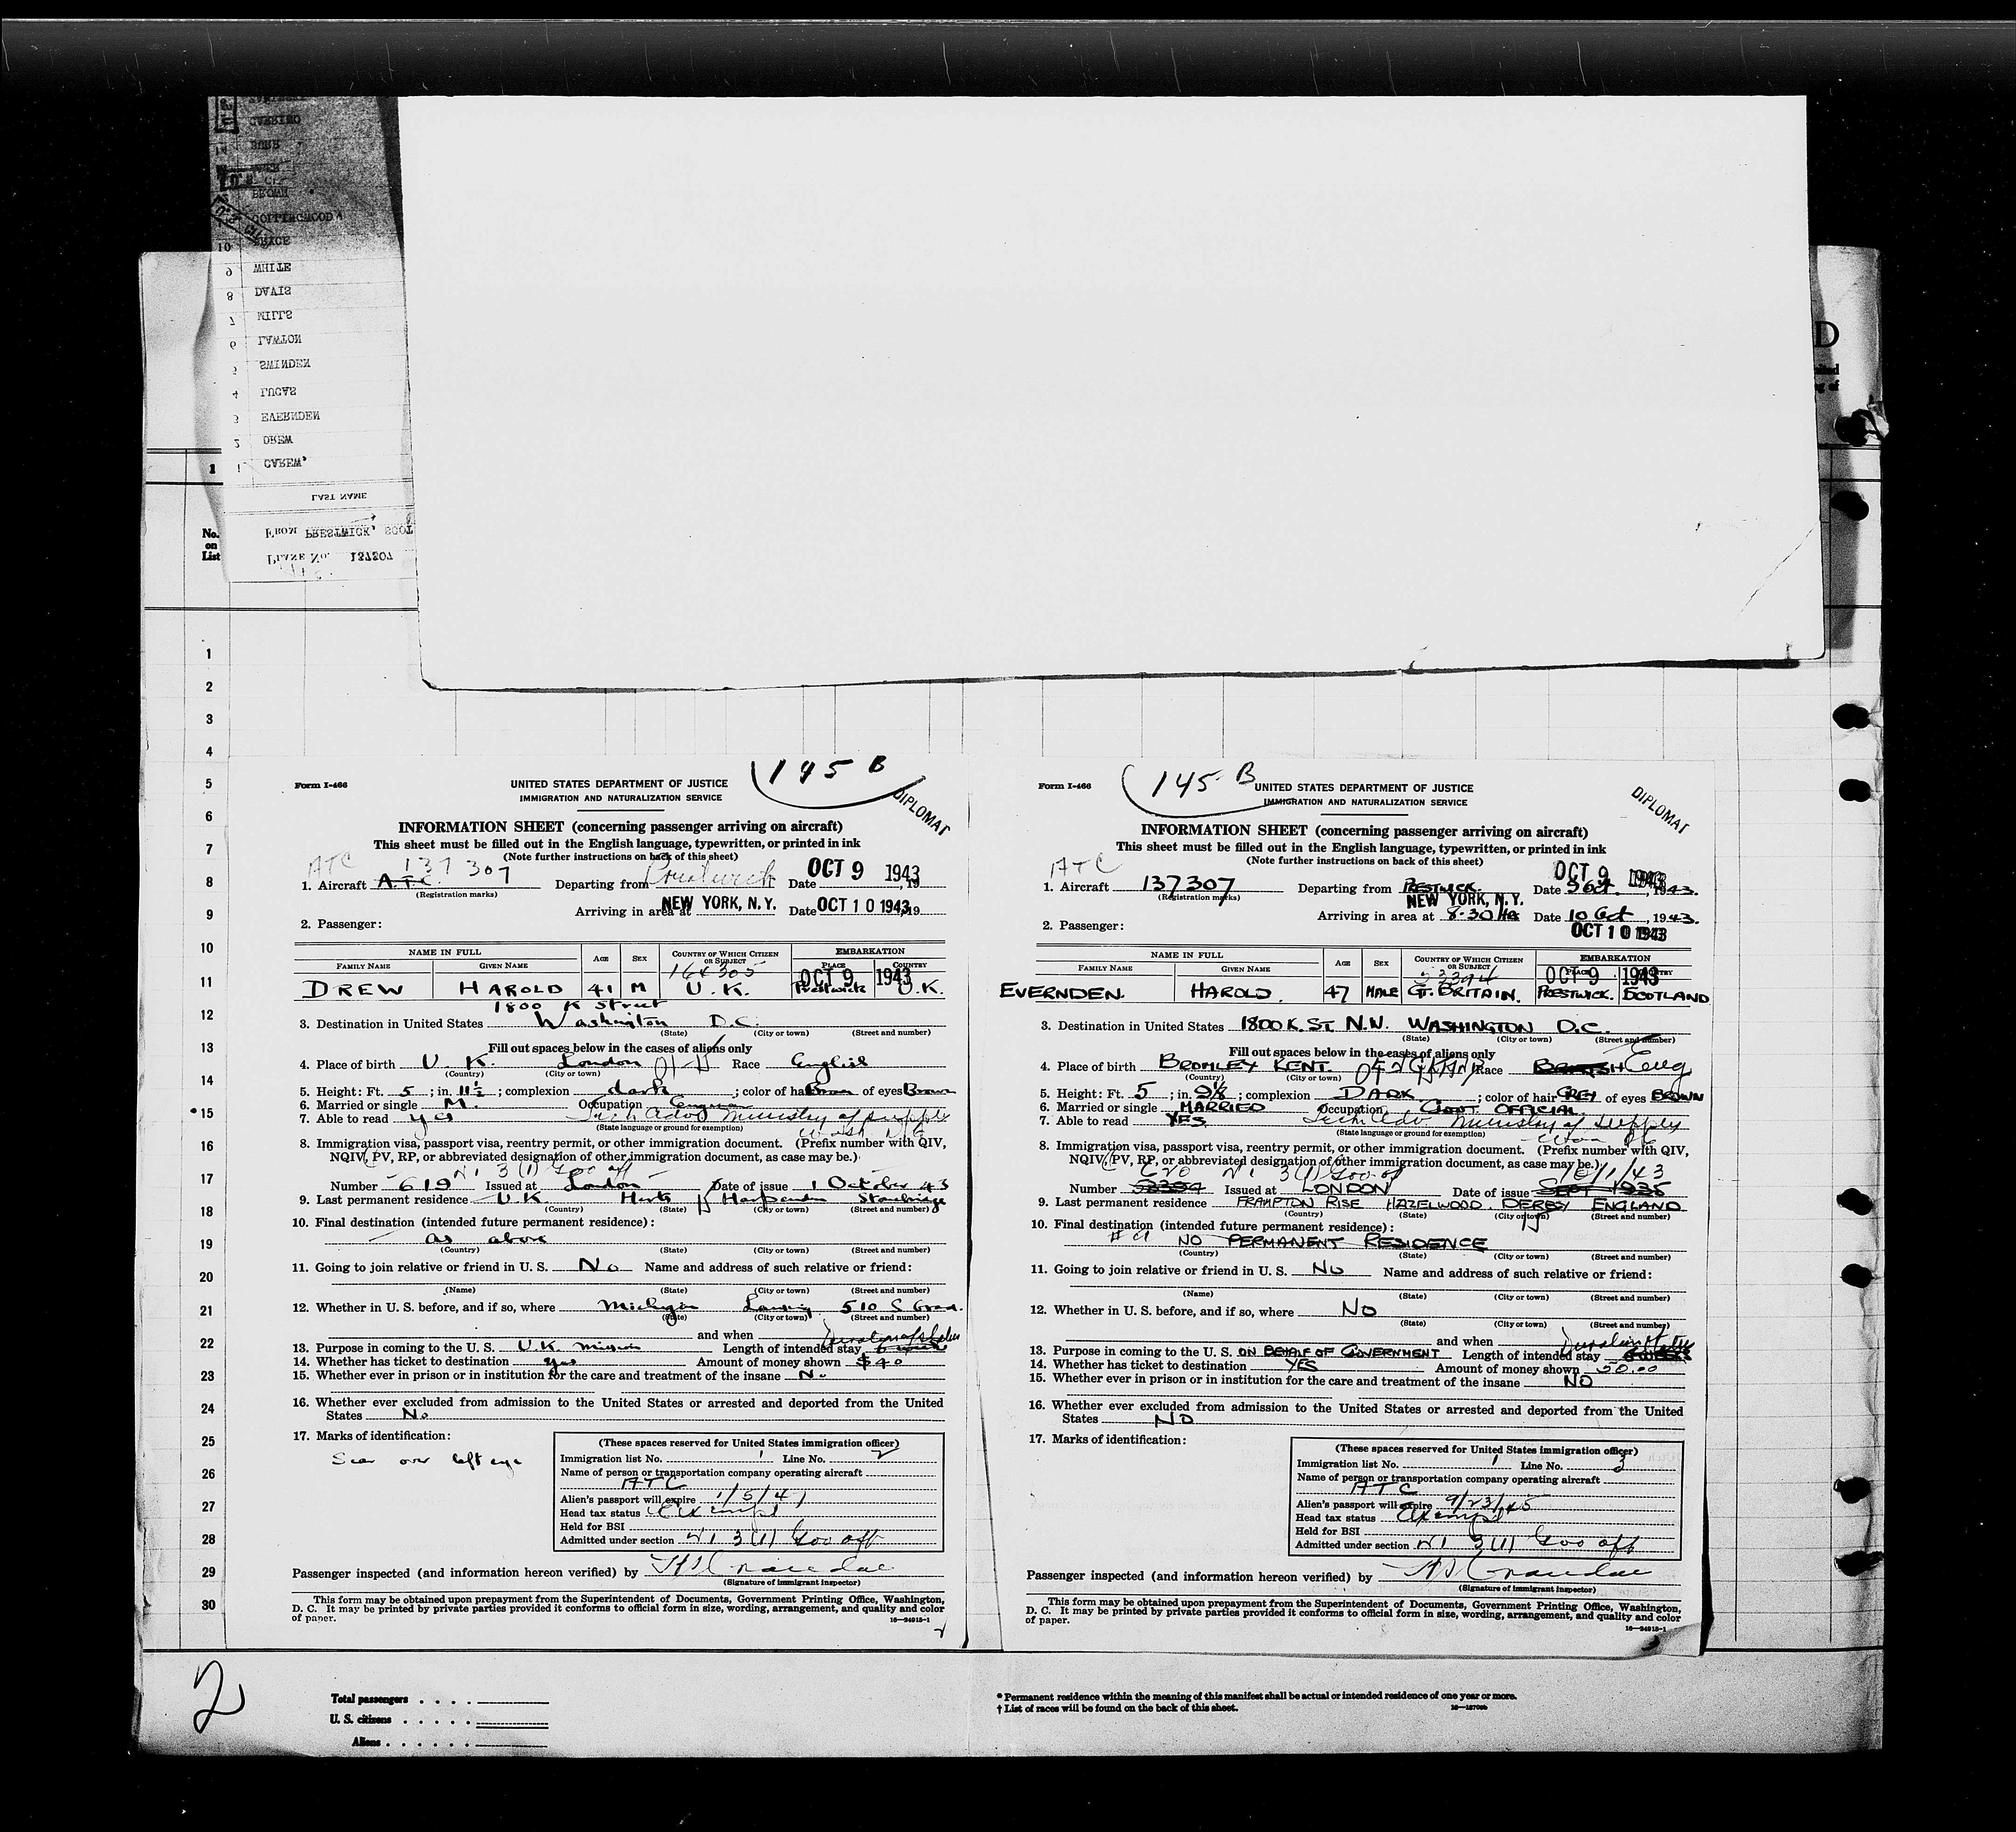 WHITE
DAVIS
MILLS
LAWTON
SWINDEN
LUCAS
EVERNDEN
DREW
CAREW,
LAST NAME
FROM PRESTWICK, SCOT
PLANE No. 137307
No.
on
List
1
2
3
4
5
6
7
8
9
10
11
12
13
14
15
16
17
18
19
20
21
22
23
24
25
26
27
28
29
30
145 B
Form I-466
UNITED STATES DEPARTMENT OF JUSTICE
IMMIGRATION AND NATURALIZATION SERVICE
DIPLOMAT
INFORMATION SHEET (concerning passenger arriving on aircraft)
This sheet must be filled out in the English language, typewritten, or printed in ink
(Note further instructions on back of this sheet)
ATC 137 307
1. Aircraft A.T.C. Departing from Prestwick Date OCT 9 1943, 19
(Registration marks)
Arriving in area at NEW YORK, N.Y. Date OCT 10 1943, 19
2. Passenger:
NAME IN FULL AGE SEX COUNTRY OF WHICH CITIZEN OR SUBJECT EMBARKATION
FAMILY NAME GIVEN NAME PLACE COUNTRY
164305 OCT 9 1943
DREW HAROLD 41 M U.K. Prestwick U.K.
1800 K Street
3. Destination in United States Washington D.C.
(State) (City or town) (Street and number)
Fill out spaces below in the cases of aliens only
4. Place of birth U.K. London Race English
(Country) (City or town)
5. Height: Ft. 5; in. 11½; complexion dark; color of hair Brown of eyes Brown
6. Married or single M. Occupation Engineer
7. Able to read yes Tech Adv Ministry of Supply
(State language or ground for exemption)
Wash DC
8. Immigration visa, passport visa, reentry permit, or other immigration document. (Prefix number with QIV,
NQIV, PV, RP, or abbreviated designation of other immigration document, as case may be.)
3(1) Gov off
Number 619 Issued at London Date of issue 1 October 43
9. Last permanent residence U.K. Herts Harpenden
(Country) (State) (City or town) (Street and number)
10. Final destination (intended future permanent residence):
as above
(Country) (State) (City or town) (Street and number)
11. Going to join relative or friend in U. S. No Name and address of such relative or friend:
(Name) (State) (City or town) (Street and number)
12. Whether in U. S. before, and if so, where Michigan Lansing 510 S Grand.
(State) (City or town) (Street and number)
and when
13. Purpose in coming to the U. S. U.K. mission Length of intended stay
14. Whether has ticket to destination yes Amount of money shown $40
15. Whether ever in prison or in institution for the care and treatment of the insane No
16. Whether ever excluded from admission to the United States or arrested and deported from the United
States No
17. Marks of identification:
Scar over left eye
(These spaces reserved for United States immigration officer)
Immigration list No. 1 Line No. 2
Name of person or transportation company operating aircraft
ATC
Alien's passport will expire 1/5/41
Head tax status Exempt
Held for BSI
Admitted under section 3(1) Gov off
Passenger inspected (and information hereon verified) by
(Signature of immigrant inspector)
This form may be obtained upon prepayment from the Superintendent of Documents, Government Printing Office, Washington,
D. C. It may be printed by private parties provided it conforms to official form in size, wording, arrangement, and quality and color
of paper. 16—24915-1
145 B
Form I-466
UNITED STATES DEPARTMENT OF JUSTICE
IMMIGRATION AND NATURALIZATION SERVICE
DIPLOMAT
INFORMATION SHEET (concerning passenger arriving on aircraft)
This sheet must be filled out in the English language, typewritten, or printed in ink
(Note further instructions on back of this sheet)
ATC OCT 9 1943
1. Aircraft 137307 Departing from PRESTWICK. Date 9 Oct., 1943.
(Registration marks) NEW YORK, N.Y.
Arriving in area at 8.30 Date 10 Oct, 1943.
2. Passenger: OCT 10 1943
NAME IN FULL AGE SEX COUNTRY OF WHICH CITIZEN OR SUBJECT EMBARKATION
FAMILY NAME GIVEN NAME PLACE COUNTRY
53394 OCT 9 1943
EVERNDEN. HAROLD. 47 MALE GT. BRITAIN. PRESTWICK. SCOTLAND
3. Destination in United States 1800 K. ST. N.W. WASHINGTON D.C.
(State) (City or town) (Street and number)
Fill out spaces below in the cases of aliens only
4. Place of birth BROMLEY KENT. Race BRITISH Eng
(Country) (City or town)
5. Height: Ft. 5; in. 9⅛; complexion DARK; color of hair GREY of eyes BROWN
6. Married or single MARRIED Occupation GOVT. OFFICIAL
7. Able to read YES Tech Adv Ministry of Supply
(State language or ground for exemption)
8. Immigration visa, passport visa, reentry permit, or other immigration document. (Prefix number with QIV,
NQIV, PV, RP, or abbreviated designation of other immigration document, as case may be.)
620 3(1) Gov off 10/1/43
Number 53394 Issued at LONDON Date of issue SEPT 1935
9. Last permanent residence FRAMPTON RISE HAZELWOOD. DERBY ENGLAND
(Country) (State) (City or town) (Street and number)
10. Final destination (intended future permanent residence):
#9 NO PERMANENT RESIDENCE
(Country) (State) (City or town) (Street and number)
11. Going to join relative or friend in U. S. NO Name and address of such relative or friend:
(Name) (State) (City or town) (Street and number)
12. Whether in U. S. before, and if so, where NO
(State) (City or town) (Street and number)
and when
13. Purpose in coming to the U. S. ON BEHALF OF GOVERNMENT Length of intended stay
14. Whether has ticket to destination YES Amount of money shown 50.00
15. Whether ever in prison or in institution for the care and treatment of the insane NO
16. Whether ever excluded from admission to the United States or arrested and deported from the United
States NO
17. Marks of identification:
(These spaces reserved for United States immigration officer)
Immigration list No. 1 Line No. 3
Name of person or transportation company operating aircraft
ATC
Alien's passport will expire 9/23/45
Head tax status Exempt
Held for BSI
Admitted under section 3(1) Gov off
Passenger inspected (and information hereon verified) by
(Signature of immigrant inspector)
This form may be obtained upon prepayment from the Superintendent of Documents, Government Printing Office, Washington,
D. C. It may be printed by private parties provided it conforms to official form in size, wording, arrangement, and quality and color
of paper. 16—24915-1
2
Total passengers
U. S. citizens
Aliens
* Permanent residence within the meaning of this manifest shall be actual or intended residence of one year or more.
† List of races will be found on the back of this sheet.